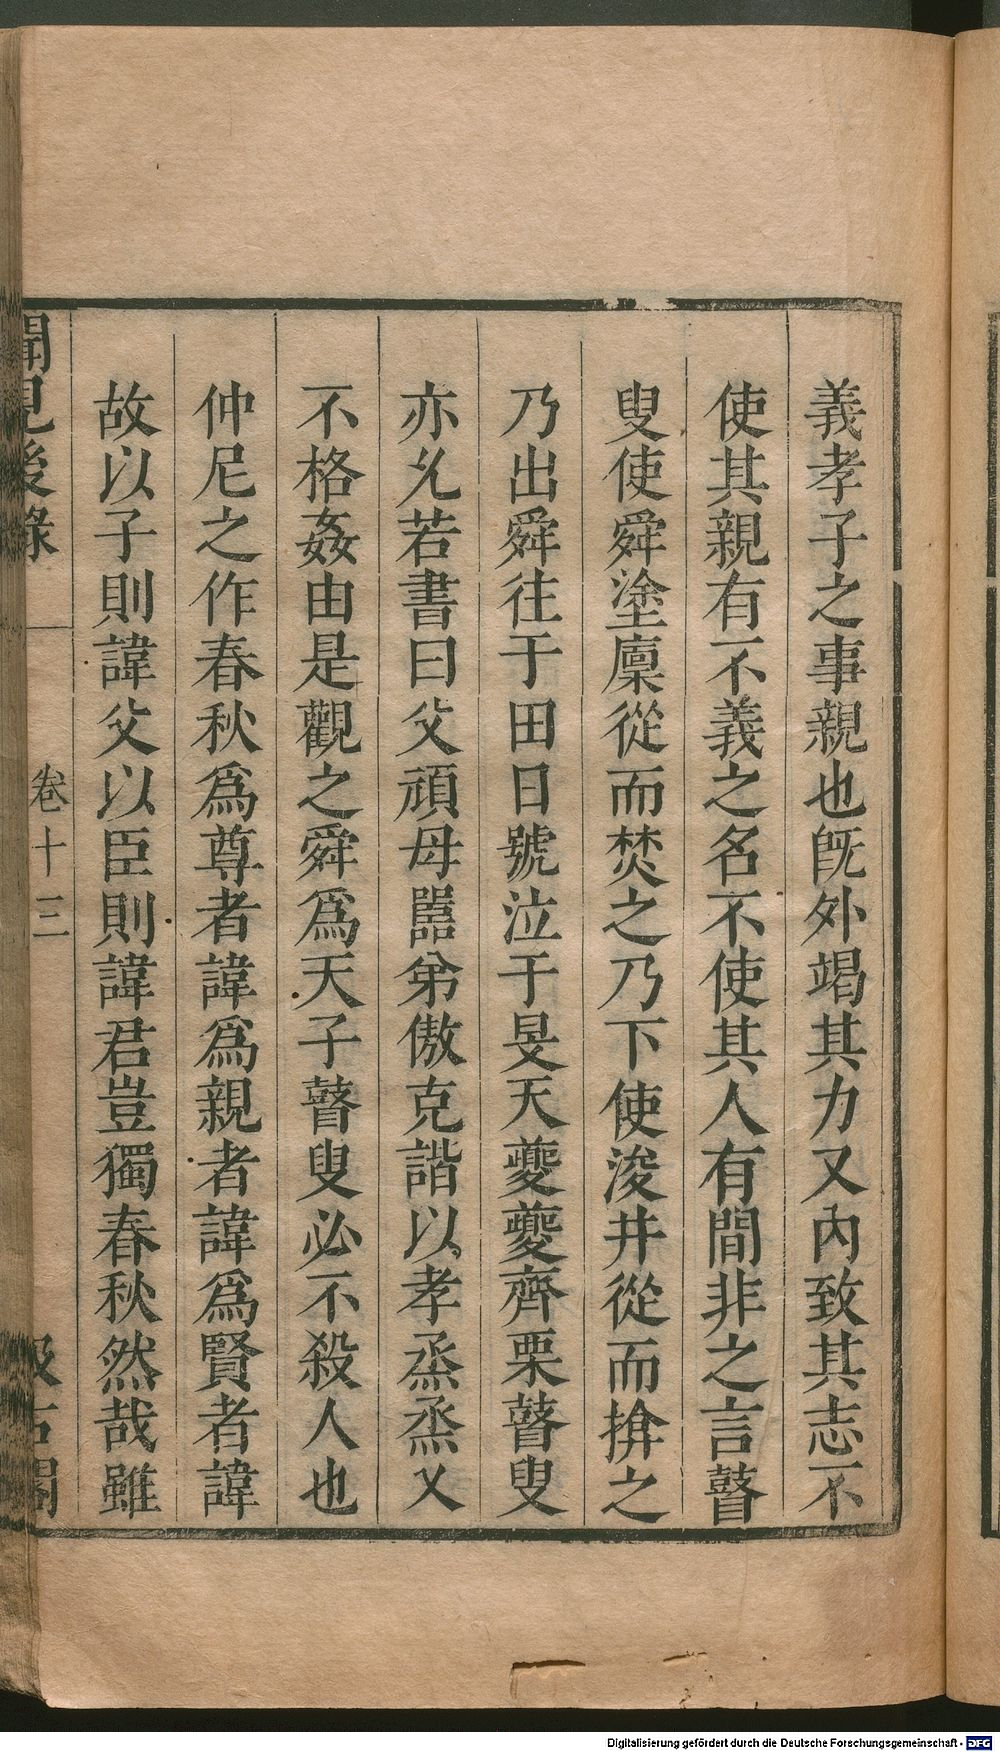 義孝子之事親也旣外竭其力又內致其志不
使其親有不義之名不使其人有間非之言瞽
叟使舜塗廩從而焚之乃下使浚井從而揜之
乃出舜往于田日號泣于旻天夔夔齊栗瞽叟
亦允若書曰父頑母嚚弟傲克諧以孝烝烝乂
不格姦由是觀之舜爲天子瞽叟必不殺人也
仲尼之作春秋爲尊者諱爲親者諱爲賢者諱
故以子則諱父以臣則諱君豈獨春秋然哉雖
聞見後錄
卷十三
汲古閣
Digitalisierung gefördert durch die Deutsche Forschungsgemeinschaft - DFG